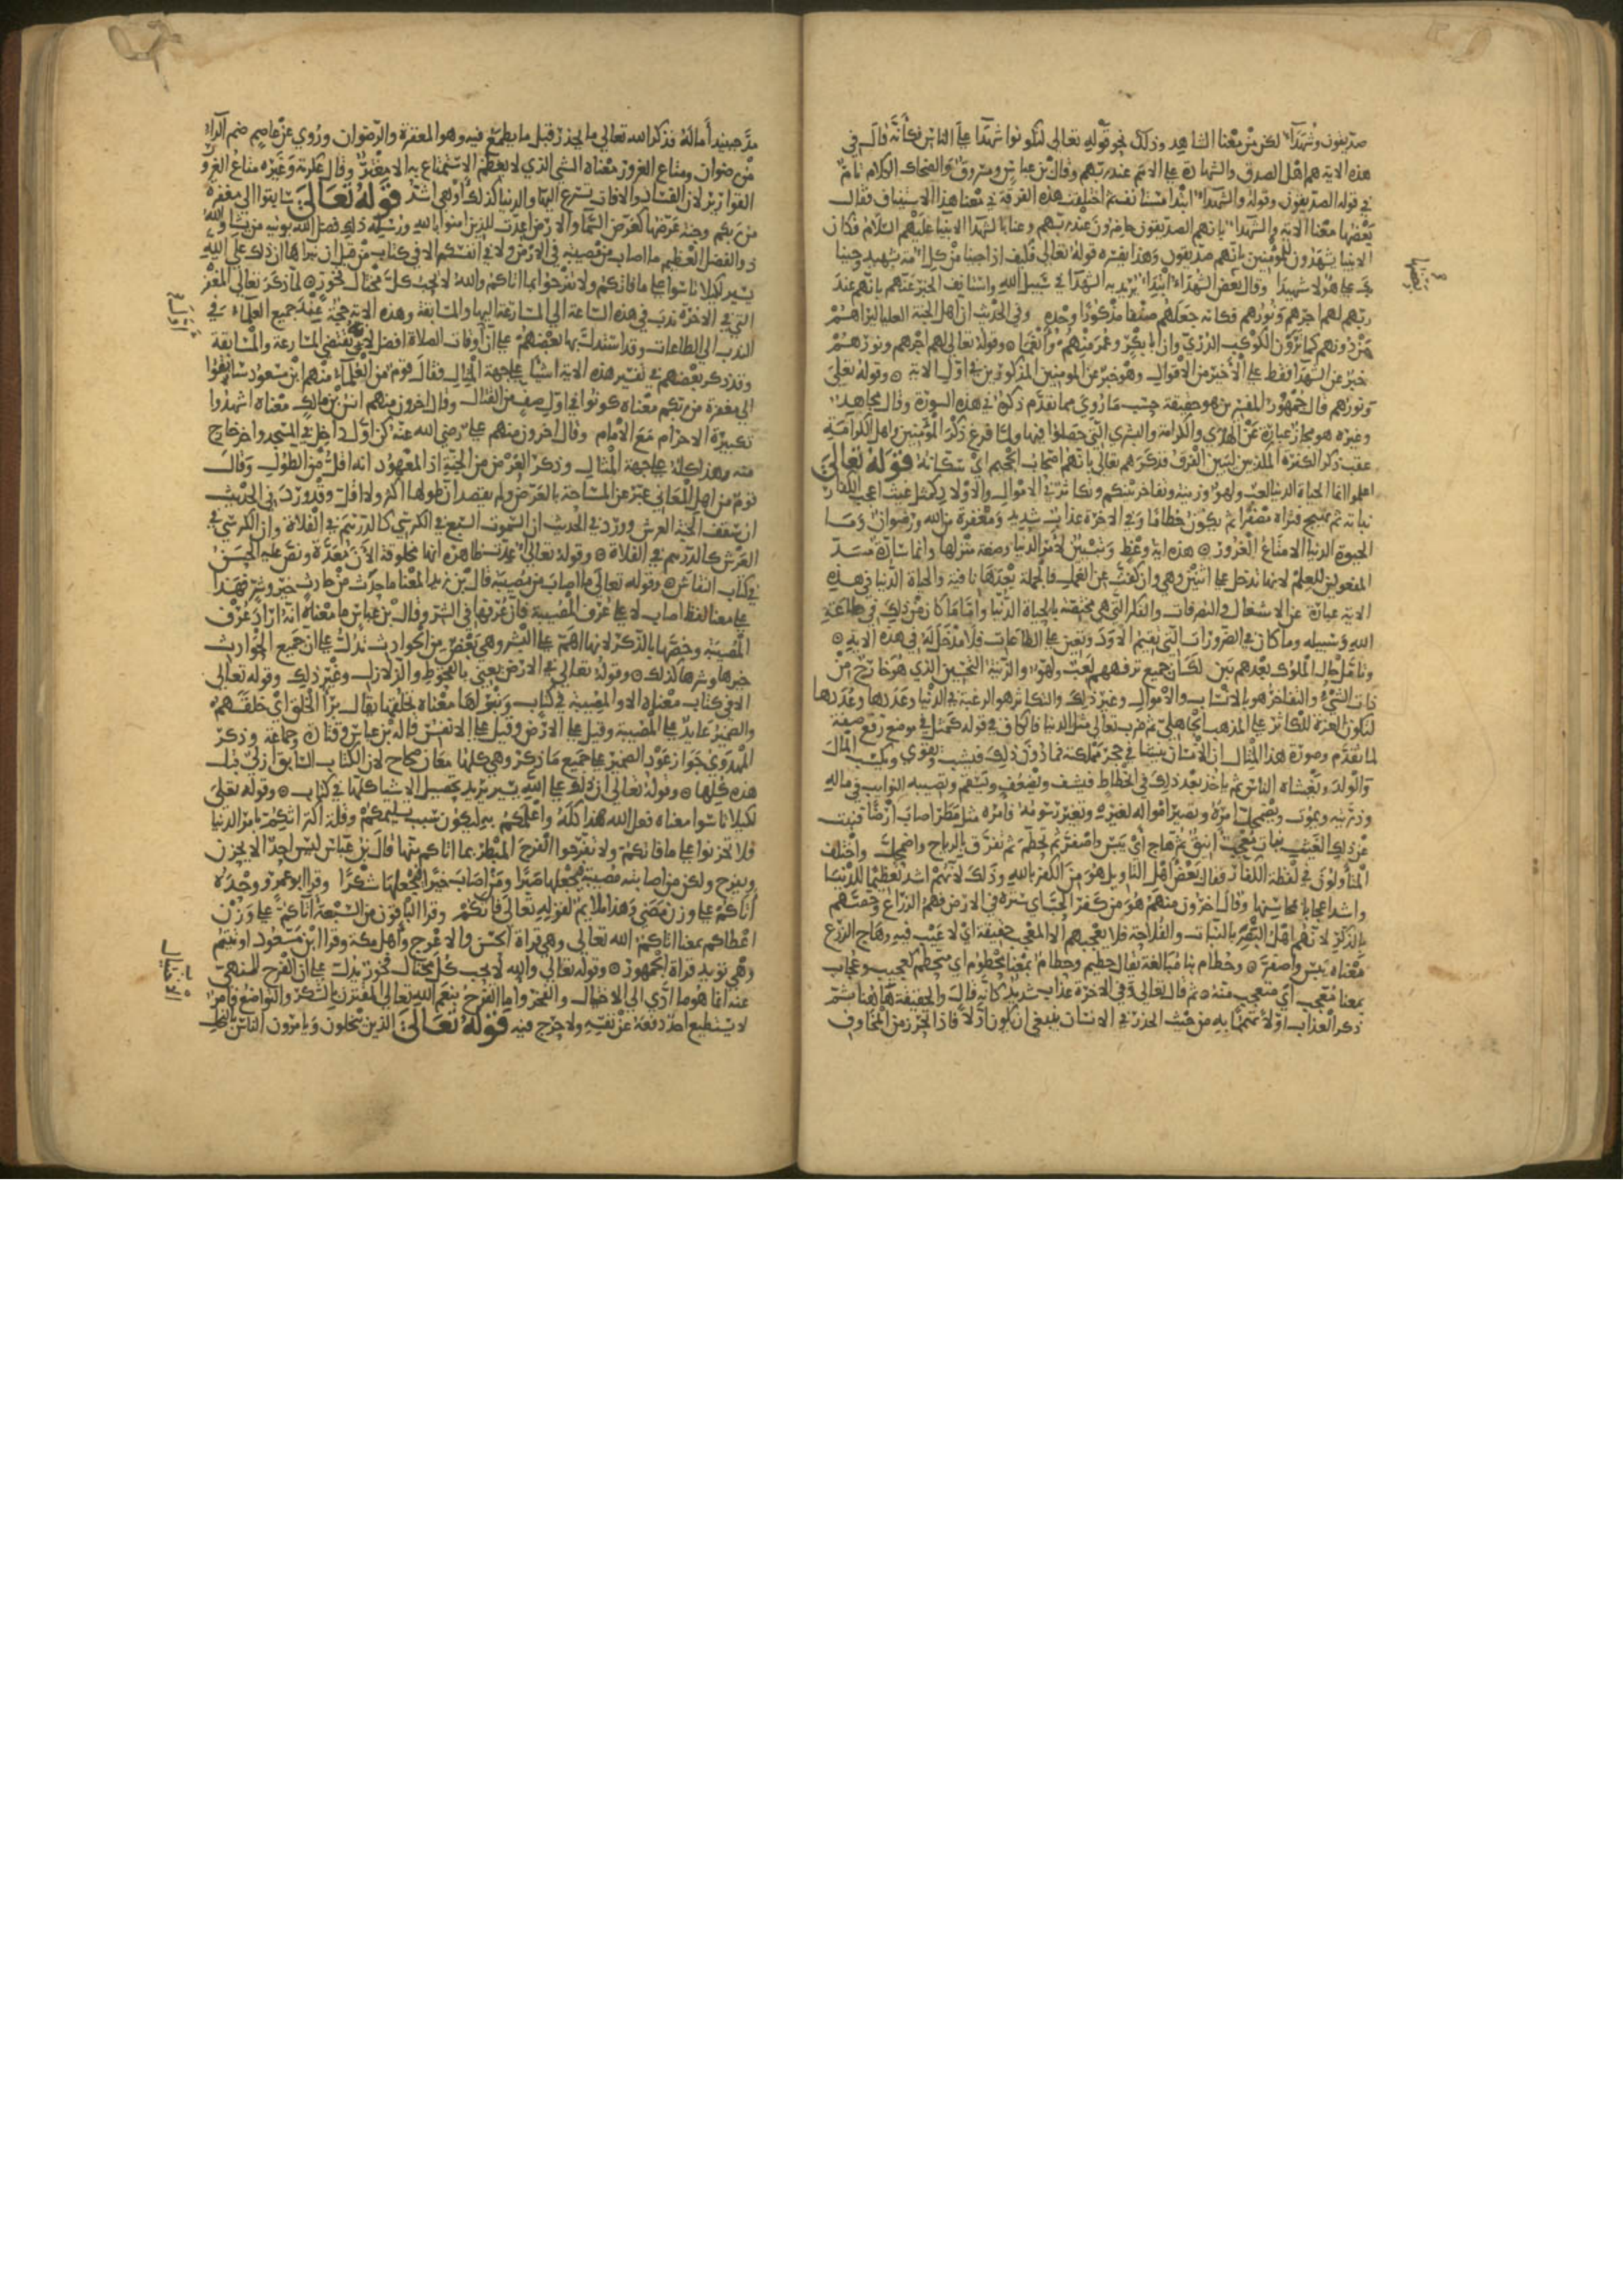 صديقون وشهدآء لكن من معنا الشاهد وذلك نحو قوله تعالى لتكونوا شهدا على الناس فكأنه قال في
هذه الاية هم اهل الصدق والشهادة على الامم عند ربهم وقال بن عباس ومسروق والضحاك الكلام تام
في قوله الصديقون وقوله والشهدآء ابتدا مستانف ثم اختلفت هذه الفرقة في معنا هذا الاستيناف فقال
بعضها معنا الاية والشهدآء بانهم الصديقون حاضرون عند ربهم وعنا بالشهدآء الانبيا عليهم السلام فكان
الانبيا يشهدون للمؤمنين بانهم صديقون وهذا يفسره قوله تعالى فكيف اذا جينا من كل امة بشهيد وجينا
بك على هؤلا شهيدا وقال بعض الشهدآء ابتدآء يريد به الشهدآ في سبيل الله واستانف الخبر عنهم بانهم عند
ربهم لهم اجرهم ونورهم فكانه جعلهم صنفا مذكورا وحده وفي الحديث ان اهل الجنة العليا ليراهم
من دونهم كما ترون الكوكب الدري وان ابا بكر وعمر منهم وانعما وقوله تعالى لهم اجرهم ونورهم
خبر عن الشهدآ فقط على الأخير من الاقوال وهو خبر عن المومنين المذكورين في اول الاية وقوله تعلى
ونورهم قال جمهور المفسرين هو حقيقة حسب ما روي مما تقدم ذكره في هذه السورة وقال مجاهد
وغيره هو مجاز عبارة عن الهدي والكرامة والبشري التي حصلوا فيها ولما فرغ ذكر المؤمنين واهل الكرامة
عقب ذكر الكفرة المكذبين ليبين الفرق فذكرهم تعالى بانهم اصحاب الجحيم اي سكانه قوله تعالى
اعلموا انما الحياة الدنيا لعب ولهو وزينة وتفاخر بينكم وتكاثر في الاموال والاولاد كمثل غيث اعجب الكفار
نباته ثم يهيج فتراه مصفرا ثم يكون حطاما وفي الاخرة عذاب شديد ومغفرة من الله ورضوان وما
الحيوة الدنيا الا متاع الغرور هذه اية وعظ وتبيين لأمر الدنيا وضعة منزلها وانما سادة مسد
المفعولين للعلم لانها تدخل على اثنين وهي وان كفت عن العمل فالجملة بعدها نافية والحياة الدنيا في هذه
الاية عبارة عن الاشغال والتصرفات والفكر التي هي مختصة بالحياة الدنيا وأما ما كان من ذلك في طاعة
الله وسبيله وما كان في الضرورات التي تقيم الاود وتعين على الطاعات فلا مدخل له في هذه الاية
وتامل حال الملوك بعدهم يبن لك ان جميع ترفههم لعب ولهو والزينة التحسين الذي هو خارج من
ذات الشيء والتفاخر هو بالانساب والاموال وغير ذلك والتكاثر هو الرغبة في الدنيا وعددها وعددها
لتكون العزة للكاثر على المذهب الجاهلي ثم ضرب تعالى مثل الدنيا فالكاف في قوله كمثل في موضع رفع صفة
لما تقدم وصورة هذا المثال ان الانسان ينشا في حجر مملكة فما دون ذلك فيشب ويقوي ويكسب المال
والولد ويغشاه الناس ثم ياخذ بعد ذلك في انحطاط فيشف ويضعف ويسقم وتصيبه النوايب في ماله
وذريته ويموت ويضمحل امره وتصير امواله لغيره وتغير رسومه فامره مثل مطر اصاب أرضا فنبت
عن ذلك الغيث نبات معجب انيق ثم هاج أي يبس واصفر ثم تحطم ثم تفرق بالرياح واضمحل واختلف
المتأولون في لفظة الكفار فقال بعض اهل التاويل هو من الكفر بالله وذلك لأنهم اشد تعظيما للدنيا
واشد اعجابا بمحاسنها وقال اخرون منهم هو من كفر الحب اي ستره في الارض فهم الزراع وخصهم
بالذكر لانهم اهل البصر بالنبات والفلاحة فلا يعجبهم الا المعجب حقيقة اي لا عيب فيه وهاج الزرع
معناه يبس واصفر وحطام بنا مبالغة يقال حطيم وحطام بمعنا محطوم اي متحطم كعجيب وعجاب
بمعنا معجب اي متعجب منه ثم قال تعالى وفي الاخرة عذاب شديد كانه قال والحقيقة ها هنا ثم
ذكر العذاب اولا تهمما به من حيث الحذر في الانسان ينبغي ان يكون اولا فاذا تحرز من المخاوف
مد حينيد أماله فذكر الله تعالى ما يحذر قبل ما يطمع فيه وهو المغفرة والرضوان وروي عن عاصم ضم الرآء
من رضوان ومتاع الغرور معناه الشي الذي لا يعظم الاستمتاع به الا مغتر وقال عكرمة وغيره متاع الغرور
القوارير لان الفساد والافات تسرع اليها والدنيا كذلك او هي اشد قوله تعالى سابقوا الى مغفرة
من ربكم وجنة عرضها كعرض السما والارض اعدت للذين امنوا بالله ورسله ذلك فضل الله يوتيه من يشا والله
ذو الفضل العظيم ما اصاب من مصيبة في الارض ولا في انفسكم الا في كتاب من قبل ان نبراها ان ذلك على الله
يسير لكيلا تاسوا على ما فاتكم ولا تفرحوا بما اتاكم والله لا يحب كل مختال فخور لما ذكر تعالى المغفرة
التي في الاخرة ندب في هذه الساعة الى المسارعة اليها والمسابقة وهذه الاية حجة عند جميع العلماء في
الندب الى الطاعات وقد استدل بها بعضهم على أن أوقات الصلاة افضل لانه يقتضي المسارعة والمسابقة
وقد ذكر بعضهم في تفسير هذه الاية اشيا على جهة المثال فقال قوم من العلماء منهم ابن مسعود سابقوا
الى مغفرة من ربكم معناه كونوا في اول صف من القتال وقال اخرون منهم انس بن مالك معناه اشهدوا
تكبيرة الاحرام مع الامام وقال اخرون منهم علي رضي الله عنه كن اول داخل في المسجد واخر خارج
منه وهذا كله على جهة المثال وذكر العرض من الجنة اذ المعهود انه اقل من الطول وقال
قوم من اهل المعاني عبر عن المساحة بالعرض ولم يقصد ان طولها اكثر ولا اقل وقد ورد في الحديث
ان سقف الجنة العرش وورد في الحديث ان السموت السبع في الكرسي كالدرهم في الفلاة وأن الكرسي في
العرش كالدرهم في الفلاة وقوله تعالى اعدت ظاهره انها مخلوقة الأن معدة ونص عليه الحسن
في كتاب النقاش وقوله تعالى ما اصاب من مصيبة قال بن زيد المعنا ما حدث من حادث خير وشر فهذا
على معنا لفظ اصاب لا على عرف المصيبة فان عرفها في الشر وقال بن عباس ما معناه انه اراد عرف
المصيبة وخصها بالذكر لانها اهم على البشر وهي بعض من الحوادث تدل على ان جميع الحوادث
خيرها وشرها كذلك وقوله تعالى في الارض يعني بالقحوط والزلازل وغير ذلك وقوله تعالى
الا في كتاب معناه الا والمصيبة في كتاب ونبراها معناه نخلقها يقال برأ الله الخلق اي خلقهم
والضمير عايد على المصيبة وقيل على الارض وقيل على الانفس قاله بن عباس وقتادة وجماعة وذكر
المهدوي جواز عود الضمير على جميع ما ذكر وهي كلها معان صحاح لان الكتاب السابق ازلي قبل
هذه كلها وقوله تعالى ان ذلك على الله يسير يريد تحصيل الاشيا كلها في كتاب وقوله تعلى
لكيلا تاسوا معناه فعل الله هذا كله واعلمكم به ليكون سبب تسليمكم وقلة اكتراثكم بامر الدنيا
فلا تحزنوا على ما فاتكم ولا تفرحوا الفرح المبطر بما اتاكم منها قال بن عباس ليس احد الا يحزن
ويفرح ولكن من اصابته مصيبة فيجعلها صبرا ومن اصاب خيرا فيجعلها شكرا وقرا ابو عمرو وحده
أتاكم على وزن مضى وهذا ملايم لقوله تعالى فاتكم وقرا الباقون من السبعة آتاكم على وزن
اعطاكم بمعنا اتاكم الله تعالى وهي قراة الحسن والاعرج وأهل مكة وقرا ابن مسعود اوتيتم
وهي تويد قراة الجمهور وقوله تعالى والله لا يحب كل مختال فخور يدل على ان الفرح المنهي
عنه انما هو ما ادى الى الاختيال والفخر واما الفرح بنعم الله تعالى المقترن بالشكر والتواضع فأمر
لا يستطيع احد دفعه عن نفسه ولا حرج فيه قوله تعالى الذين يبخلون ويامرون الناس بالبخل